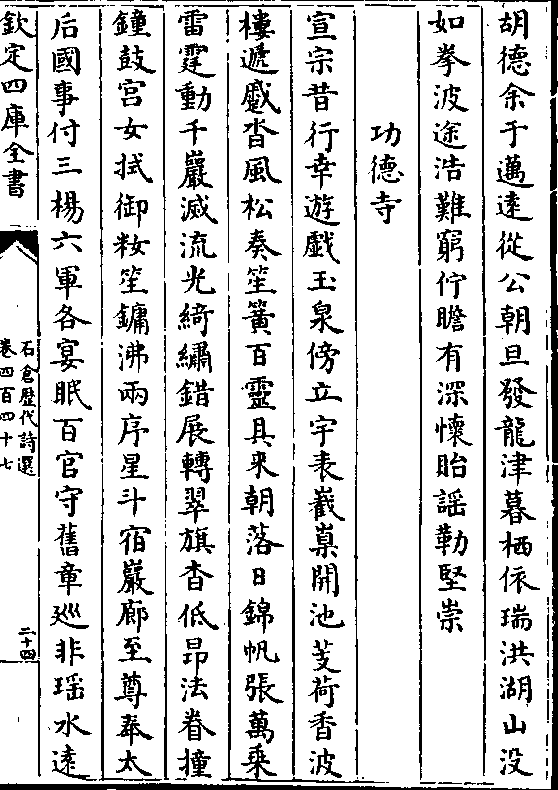 胡德余于邁遠從公朝旦發龍津暮栖依瑞洪湖山没
如拳波途浩難窮佇瞻有深懷眙謡勒堅崇
功德寺
宣宗昔行幸遊戲玉泉傍立宇表巀嵲開池芰荷香波
樓遞戲沓風松奏笙簧百靈具來朝落日錦帆張萬乘
雷霆動千巖滅流光綺繡錯展轉翠旗杳低昂法眷撞
鐘鼓宮女拭御粧笙鏞沸兩序星斗宿巖廊至尊奉太
后國事付三楊六軍各宴眠百官守舊章廵非瑶水遠
欽定四庫全書
石倉歴代詩選
卷四百四十七
二十四